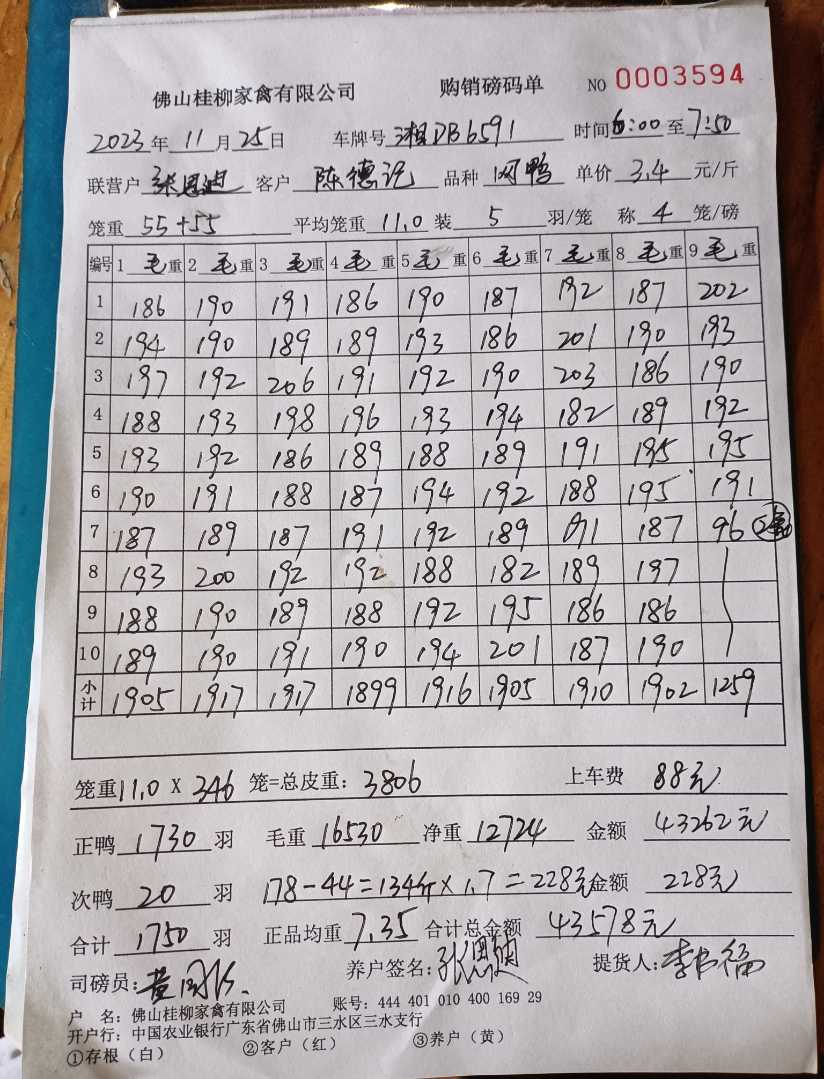 佛山桂柳家禽有限公司 购销磅码单 NO 0003594
2023年11月25日 车牌号 湘DB6591 时间 6:00至7:50
联营户 张恩迪 客户 陈德记 品种 网鸭 单价 3.4 元/斤
笼重 55+55 平均笼重 11.0 装 5 羽/笼 称 4 笼/磅
编号 1毛重 2毛重 3毛重 4毛重 5毛重 6毛重 7毛重 8毛重 9毛重
1 186 190 191 186 190 187 192 187 202
2 194 190 189 189 193 186 201 190 193
3 197 192 206 191 192 190 203 186 190
4 188 193 198 196 193 194 182 189 192
5 193 192 186 189 188 189 191 195 195
6 190 191 188 187 194 192 188 195 191
7 187 189 187 191 192 189 191 187 96
8 193 200 192 192 188 182 189 197
9 188 190 189 188 192 195 186 186
10 189 190 191 190 194 201 187 190
小计 1905 1917 1917 1899 1916 1905 1910 1902 1259
笼重11.0 X 346 笼=总皮重: 3806 上车费 88元
正鸭 1730 羽 毛重 16530 净重 12724 金额 43262元
次鸭 20 羽 178-44=134斤×1.7=228元 金额 228元
合计 1750 羽 正品均重 7.35 合计总金额 43578元
司磅员: 黄 养户签名: 张恩迪 提货人: 李
户 名: 佛山桂柳家禽有限公司 账号: 444 401 010 400 169 29
开户行: 中国农业银行广东省佛山市三水区三水支行
①存根(白) ②客户(红) ③养户(黄)